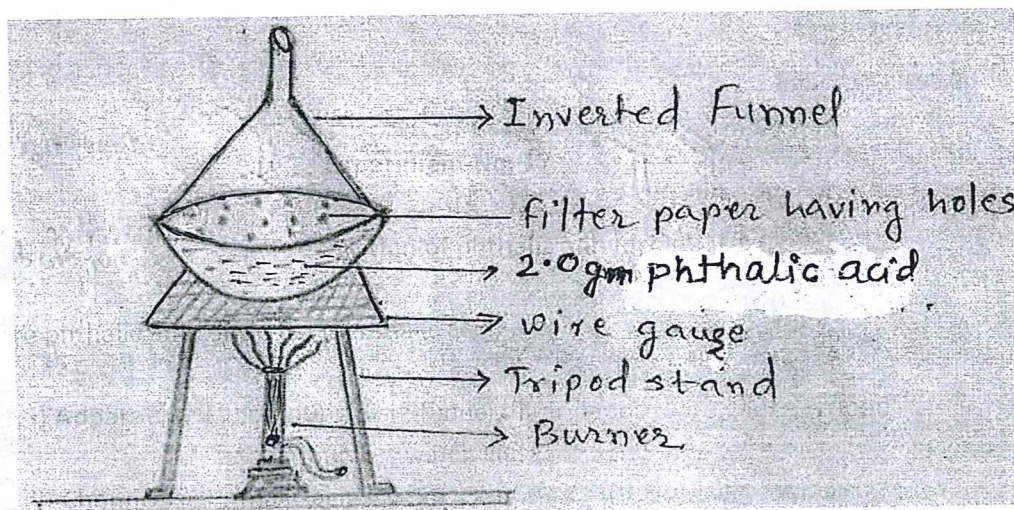 Inverted Funnel
filter paper having holes
2.0gm phthalic acid
wire gauge
Tripod stand
Burner